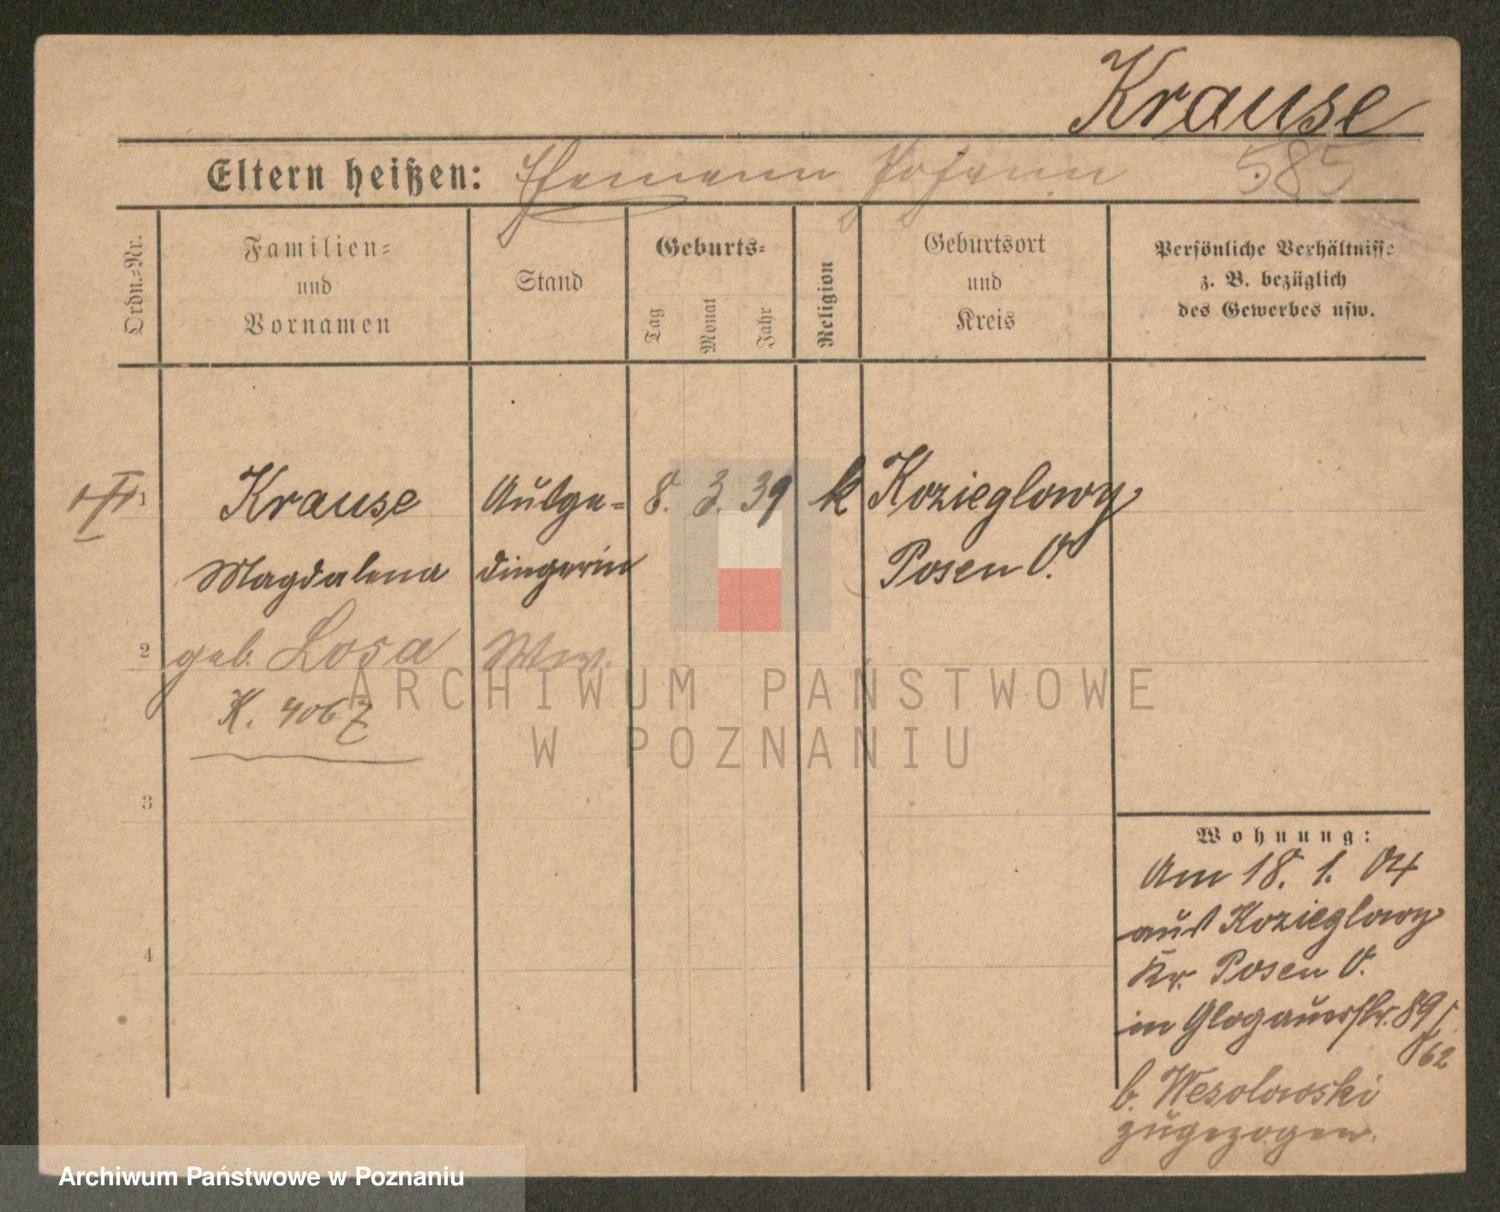 Krause
Eltern heißen: Hemann Johann 585
Ordn.=Nr.
Familien=
und
Vornamen
Stand
Geburts=
Tag
Monat
Jahr
Religion
Geburtsort
und
Kreis
Persönliche Verhältnisse
z. B. bezüglich
des Gewerbes usw.
1 Krause Ausge= 8. 3. 39 k Kozieglowy
Magdalena dingerin Posen O.
2 geb. Losa Ww.
K. 4067
3
4
Wohnung:
Am 18. 1. 04
aus Kozieglowy
Kr. Posen O.
in Glogauerstr. 89
62
b. Wesolowski
zugezogen.
ARCHIWUM PAŃSTWOWE
W POZNANIU
Archiwum Państwowe w Poznaniu